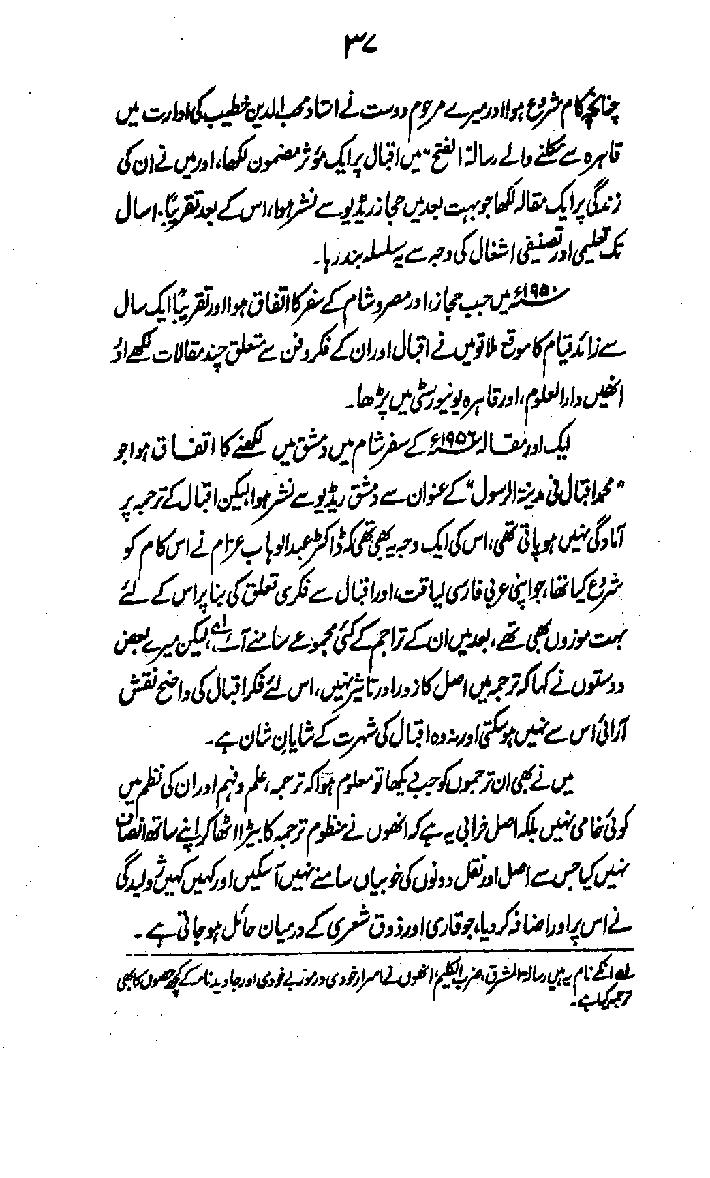 ۳۷
چنانچہ کام شروع ہوا اور میرے مرحوم دوست نے استاد محب الدین خطیب کی ادارت میں
قاہرہ سے نکلنے والے رسالہ "الفتح" میں اقبال پر ایک مؤثر مضمون لکھا، اور میں نے ان کی
زندگی پر ایک مقالہ لکھا جو بہت بعد میں حجاز ریڈیو سے نشر ہوا، اس کے بعد تقریباً ۱۰ سال
تک تعلیمی اور تصنیفی اشغال کی وجہ سے یہ سلسلہ بند رہا۔
۱۹۵۰ء میں جب حجاز، اور مصر و شام کے سفر کا اتفاق ہوا اور تقریباً ایک سال
سے زائد قیام کا موقع ملا تو میں نے اقبال اور ان کے فکر و فن سے متعلق چند مقالات لکھے اور
انھیں دارالعلوم، اور قاہرہ یونیورسٹی میں پڑھا۔
ایک اور مقالہ ۱۹۵۶ء کے سفر شام میں دمشق میں لکھنے کا اتفاق ہوا جو
"محمد اقبال فی مدینۃ الرسول" کے عنوان سے دمشق ریڈیو سے نشر ہوا لیکن اقبال کے ترجمہ پر
آمادگی نہیں ہو پاتی تھی، اس کی ایک وجہ یہ بھی تھی کہ ڈاکٹر عبدالوہاب عزام نے اس کام کو
شروع کیا تھا، جو اپنی عربی فارسی لیاقت، اور اقبال سے فکری تعلق کی بنا پر اس کے لئے
بہت موزوں بھی تھے، بعد میں ان کے تراجم کے کئی مجموعے سامنے آئے لہ، لیکن میرے بعض
دوستوں نے کہا کہ ترجمہ میں اصل کا زور اور تاثیر نہیں، اس لئے فکر اقبال کی واضح نقش
آرائی اس سے نہیں ہو سکتی اور نہ وہ اقبال کی شہرت کے شایانِ شان ہے۔
میں نے بھی ان ترجموں کو جب دیکھا تو معلوم ہوا کہ ترجمہ، علم و فہم اور ان کی نظم میں
کوئی خامی نہیں بلکہ اصل خرابی یہ ہے کہ انھوں نے منظوم ترجمہ کا بیڑا اٹھا کر اپنے ساتھ انصاف
نہیں کیا جس سے اصل اور نقل دونوں کی خوبیاں سامنے نہیں آسکیں اور کہیں کہیں ژولیدگی
نے اس پر اور اضافہ کر دیا، جو قاری اور ذوق شعری کے درمیان حائل ہو جاتی ہے۔
لہ انکے نام یہ ہیں رسالۃ المشرق، ضرب الکلیم، انھوں نے اسرار خودی و رموز بے خودی اور جاوید نامہ کے کچھ حصوں کا بھی
ترجمہ کیا ہے۔